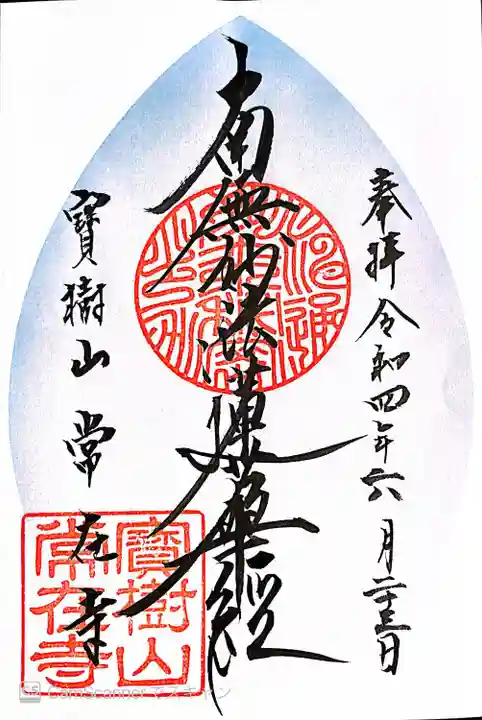 奉拝 令和四年六月二十三日
南無妙法蓮華経
寳樹山 常在寺
寳樹山
常在寺
CamScanner でスキャン